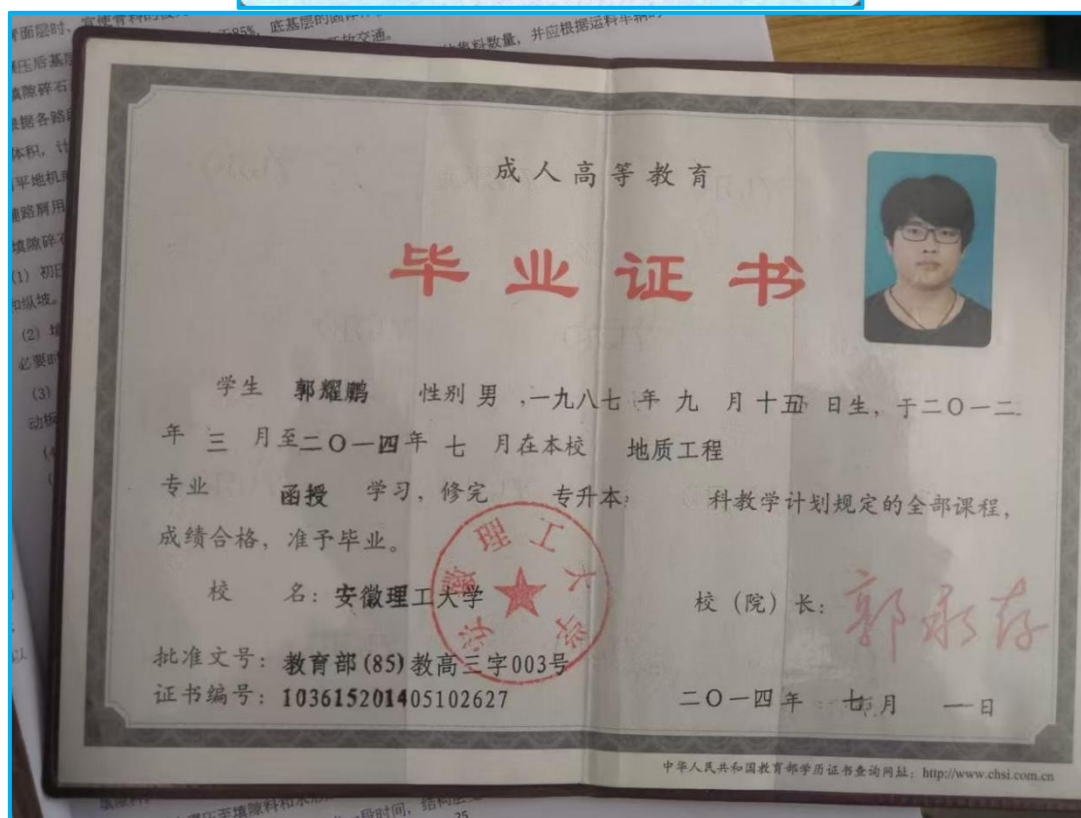 成人高等教育
毕业证书
学生 郭耀鹏 性别 男 ,一九八七 年 九 月 十五 日生, 于二〇一二
年 三 月至二〇一四年 七 月在本校 地质工程
专业 函授 学习, 修完 专升本: 科教学计划规定的全部课程,
成绩合格, 准予毕业。
校 名: 安徽理工大学
安徽理工大学
校（院）长: 郭永存
批准文号: 教育部(85)教高三字003号
证书编号: 103615201405102627
二〇一四年 七月 一日
中华人民共和国教育部学历证书查询网址: http://www.chsi.com.cn
25